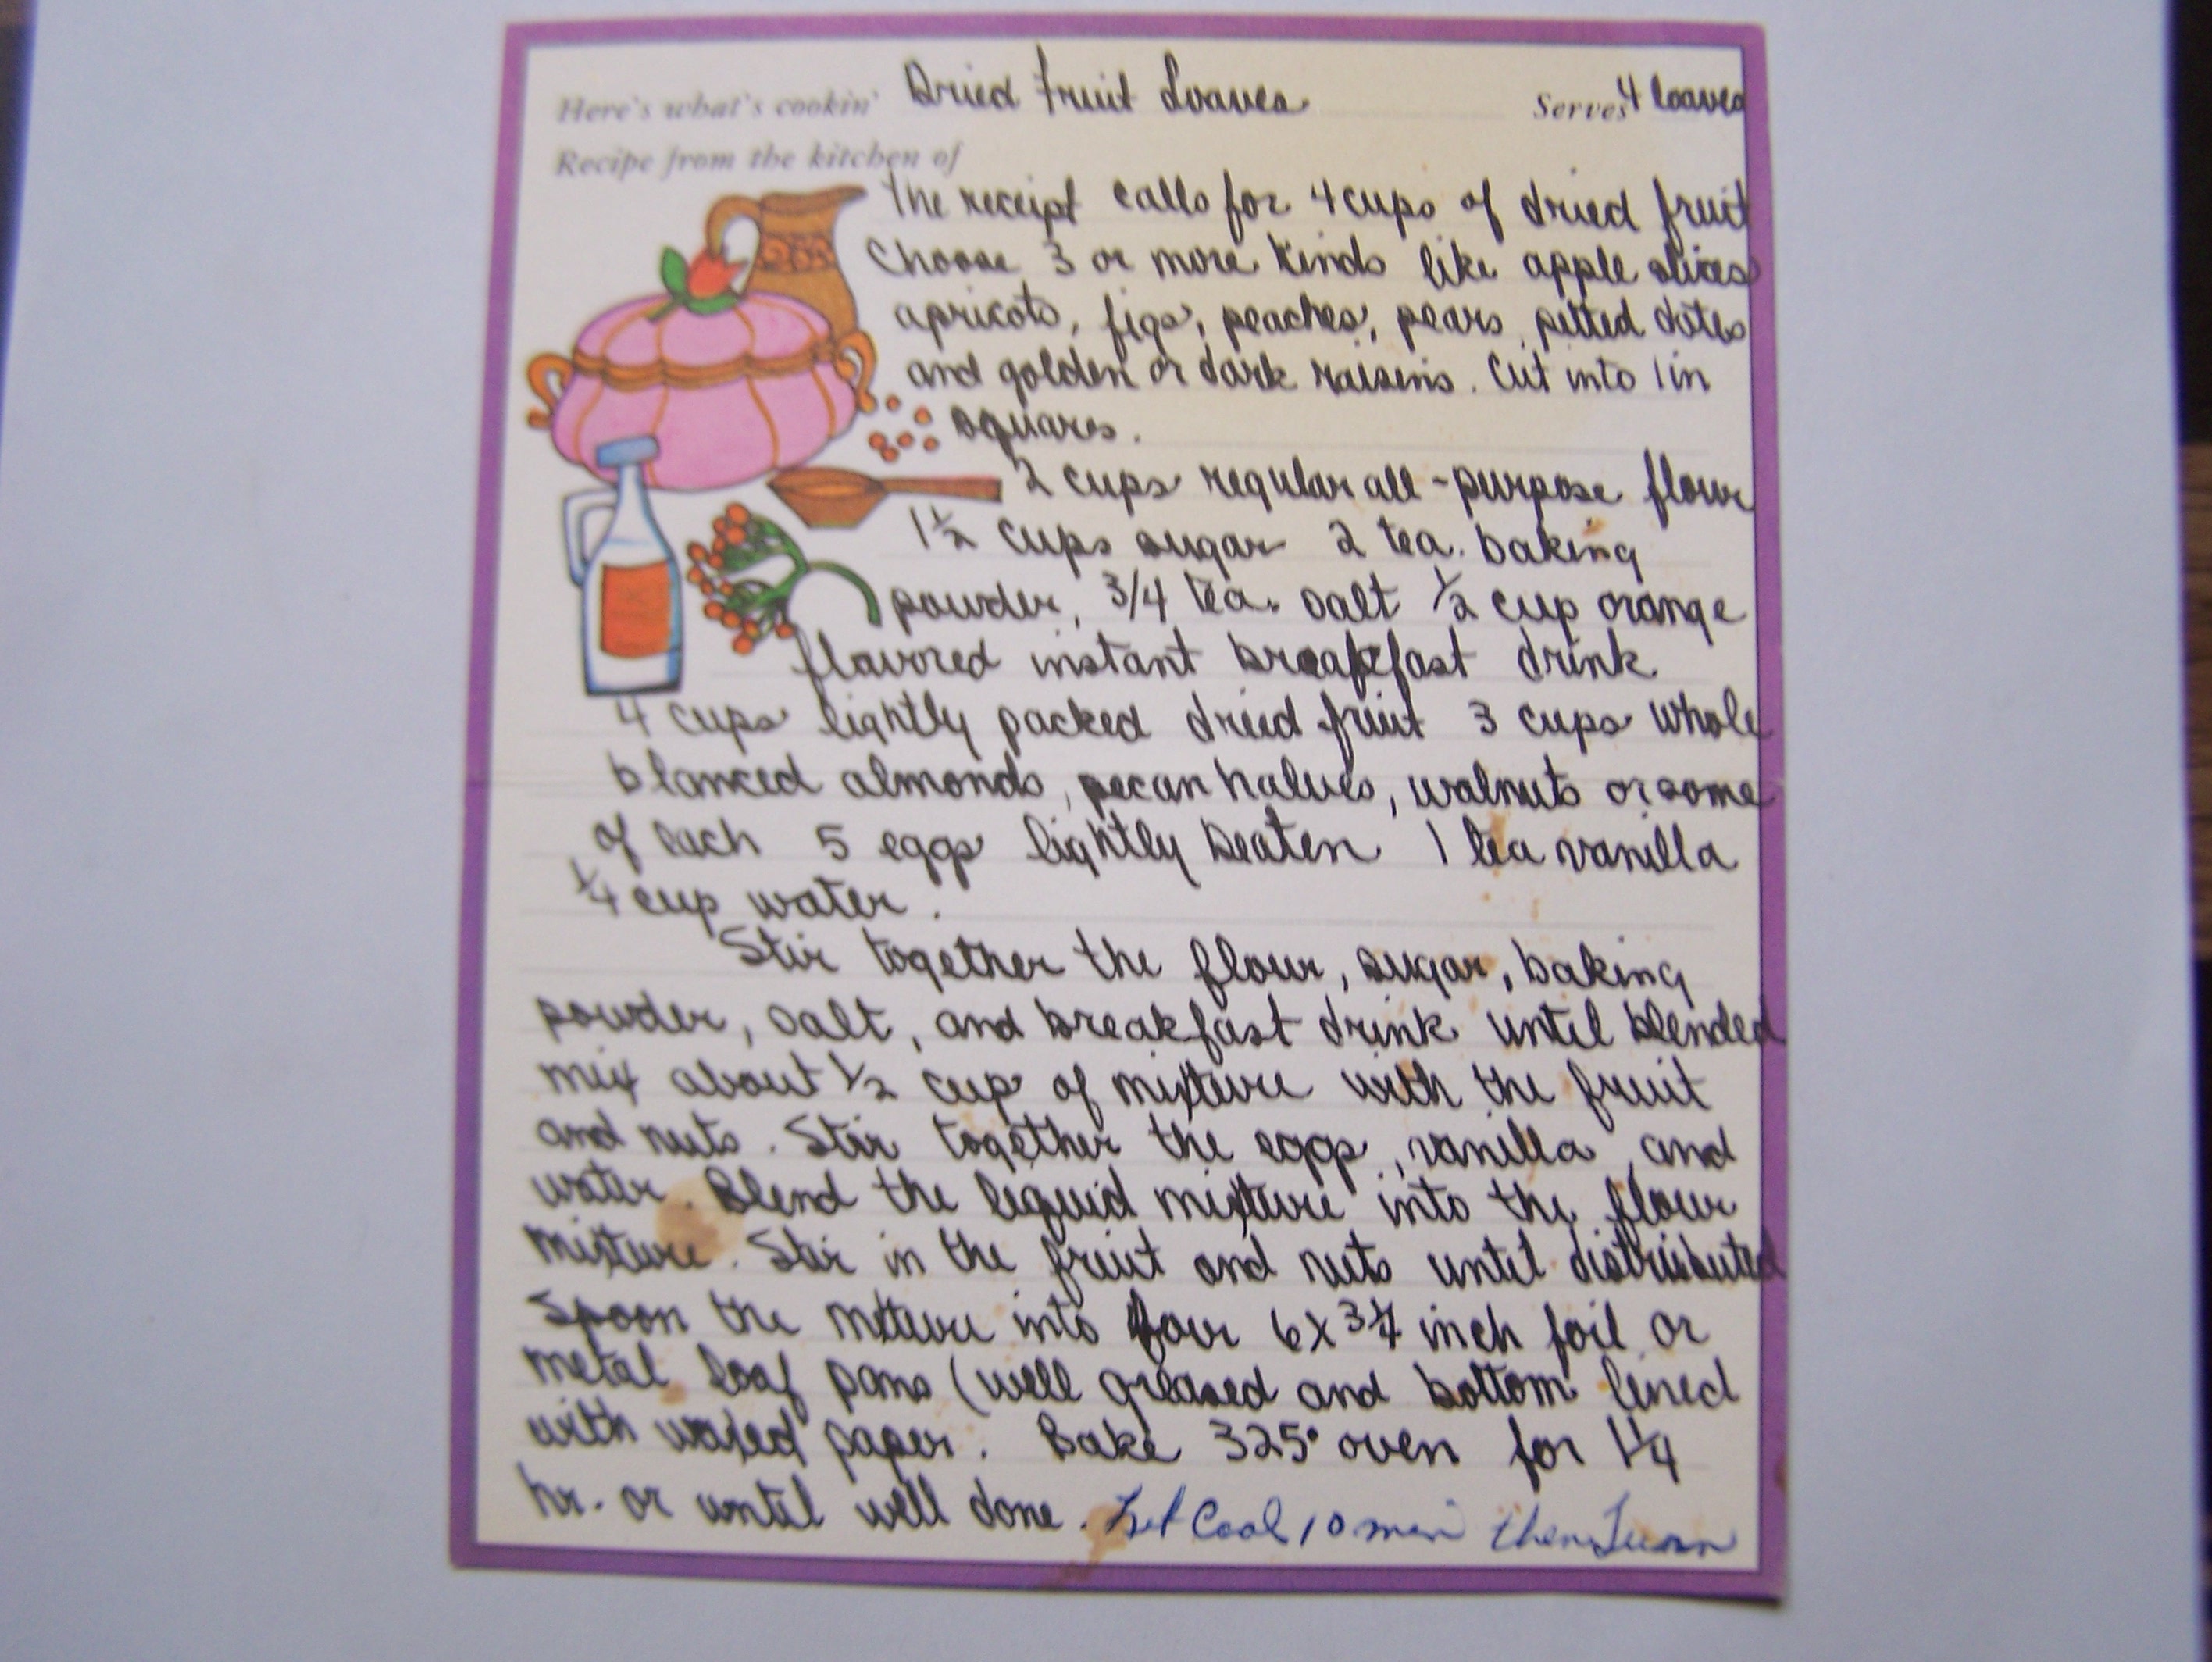 Here's what's cookin' Dried Fruit Loaves Serves 4 loaves
Recipe from the kitchen of
The receipt calls for 4 cups of dried fruit
Choose 3 or more kinds like apple slices
apricots, figs, peaches, pears, pitted dates
and golden or dark raisins. Cut into 1 in
squares.
2 cups regular all-purpose flour
1 1/2 cups sugar 2 tea. baking
powder, 3/4 tea. salt 1/2 cup orange
flavored instant breakfast drink
4 cups lightly packed dried fruit 3 cups whole
blanced almonds, pecan halves, walnuts or some
of each 5 eggs lightly beaten 1 tea vanilla
1/4 cup water.
Stir together the flour, sugar, baking
powder, salt, and breakfast drink until blended
mix about 1/2 cup of mixture with the fruit
and nuts. Stir together the eggs, vanilla, and
water. Blend the liquid mixture into the flour
mixture. Stir in the fruit and nuts until distributed
Spoon the mixture into four 6x3 1/4 inch foil or
metal loaf pans (well greased and bottom lined
with waxed paper. Bake 325° oven for 1 1/4
hr. or until well done. Let Cool 10 min then Turn